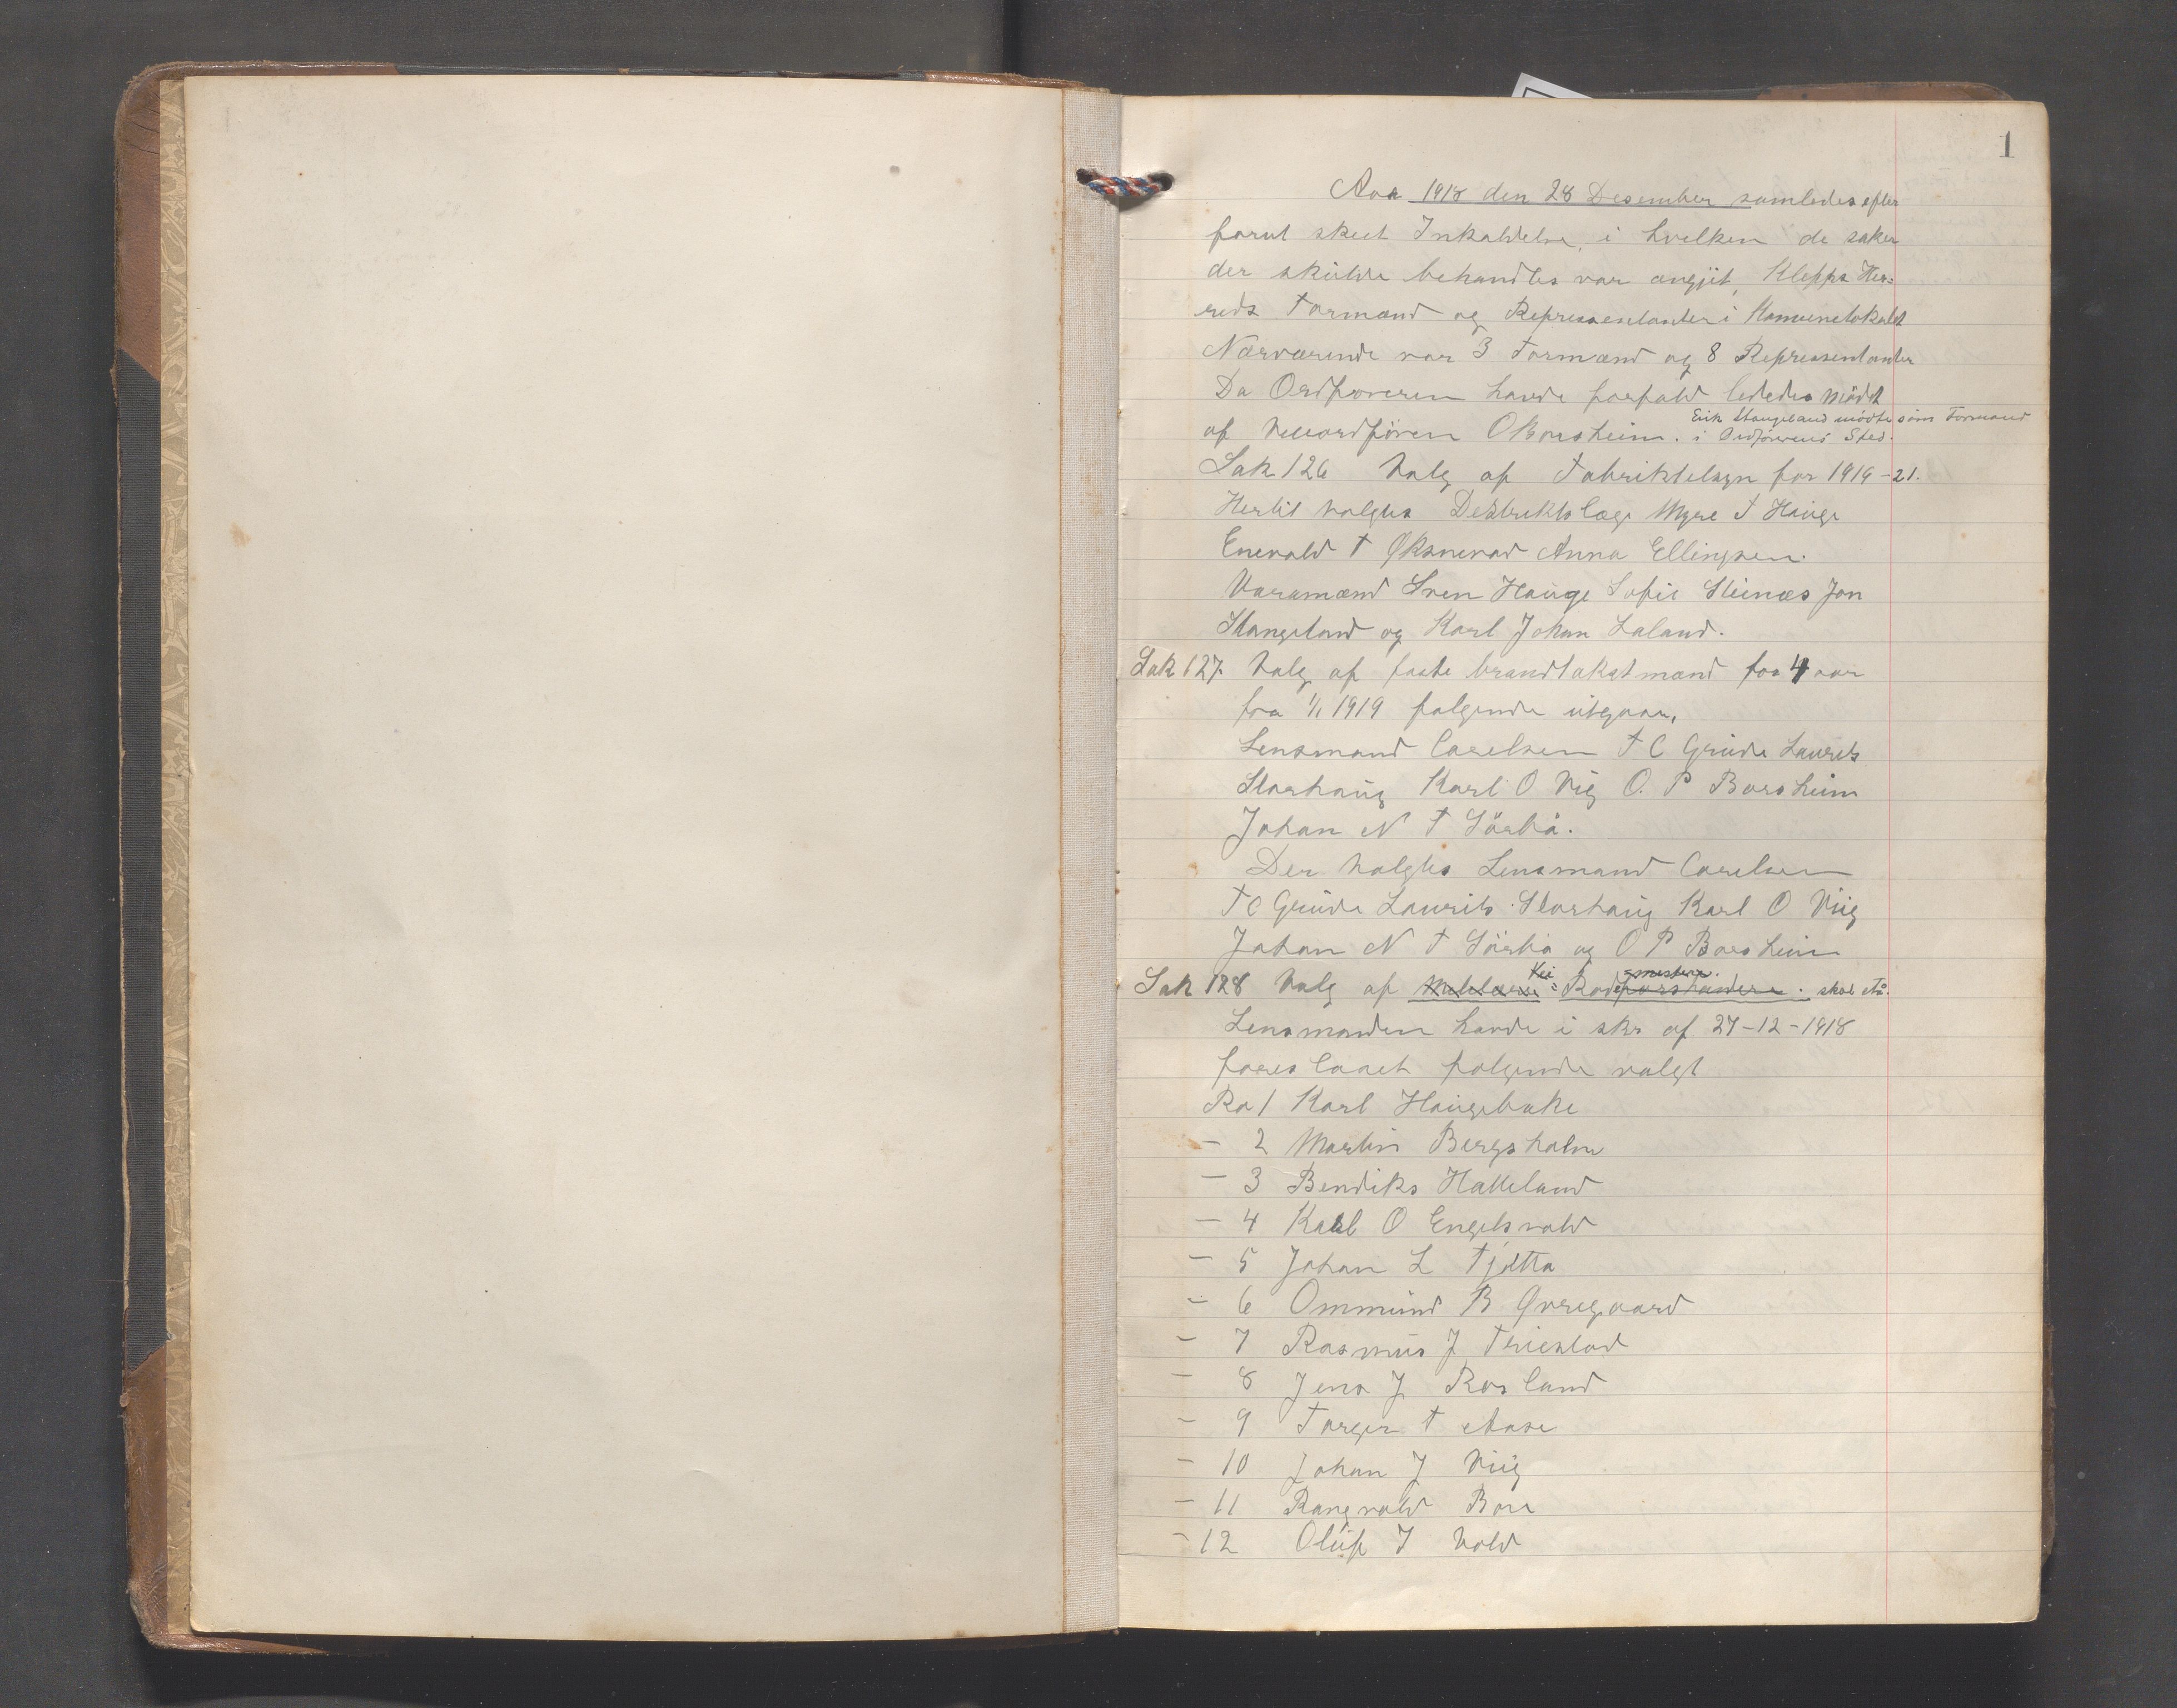 1
Aar 1918 den 28 Desember samledes efter
forut skeet Inkaldelse, i hvilken de saker
der skulde behandles var angjit, Klepps Her=
reds Formænd og Repræsentanter i Komunelokalet
Nærværende var 3 Formænd og 8 Repræsentanter
Da Ordføreren havde forfald lededes mødet
Erik Stangeland mødte som Formand
af Viceordføren O Borsheim. i Ordførerens Sted.
Sak 126 Valg af Fabriktilsyn for 1919-21.
Hertil valgtes Destriktslæge Myre T Hauge
Enevald T Øksnevad Anna Ellingsen.
Varamænd Sven Hauge Sofie Steinnes Jon
Stangeland og Karl Johan Laland.
Sak 127. Valg af faste brandtakstmænd for 4 aar
fra 1/1 1919 følgende utgaar,
Lensmand Carelsen T C Grude Laurits
Storhaug Karl O Vig O. P Borsheim
Johan N T Sörbö.
Der valgtes Lensmand Carelsen
T C Grude Laurits Storhaug Karl O Viig
Johan N T Sörbö og O P Borsheim
Sak 128 Valg af Vei= Rodemestere. skal stå.
Lensmanden havde i skr af 27-12-1918
foreslaaet følgende valgt
Ro 1 Karl Haugebakke
- 2 Martin Bergsholm
- 3 Bendiks Hatteland
- 4 Karl O Engelsvold
- 5 Johan L Tjøtta
- 6 Ommund B Øvregaard
- 7 Rasmus J Friestad
- 8 Jens J Rosland
- 9 Torger T Aase
- 10 Johan J Viig
- 11 Rangvald Bore
- 12 Oluf I Vold